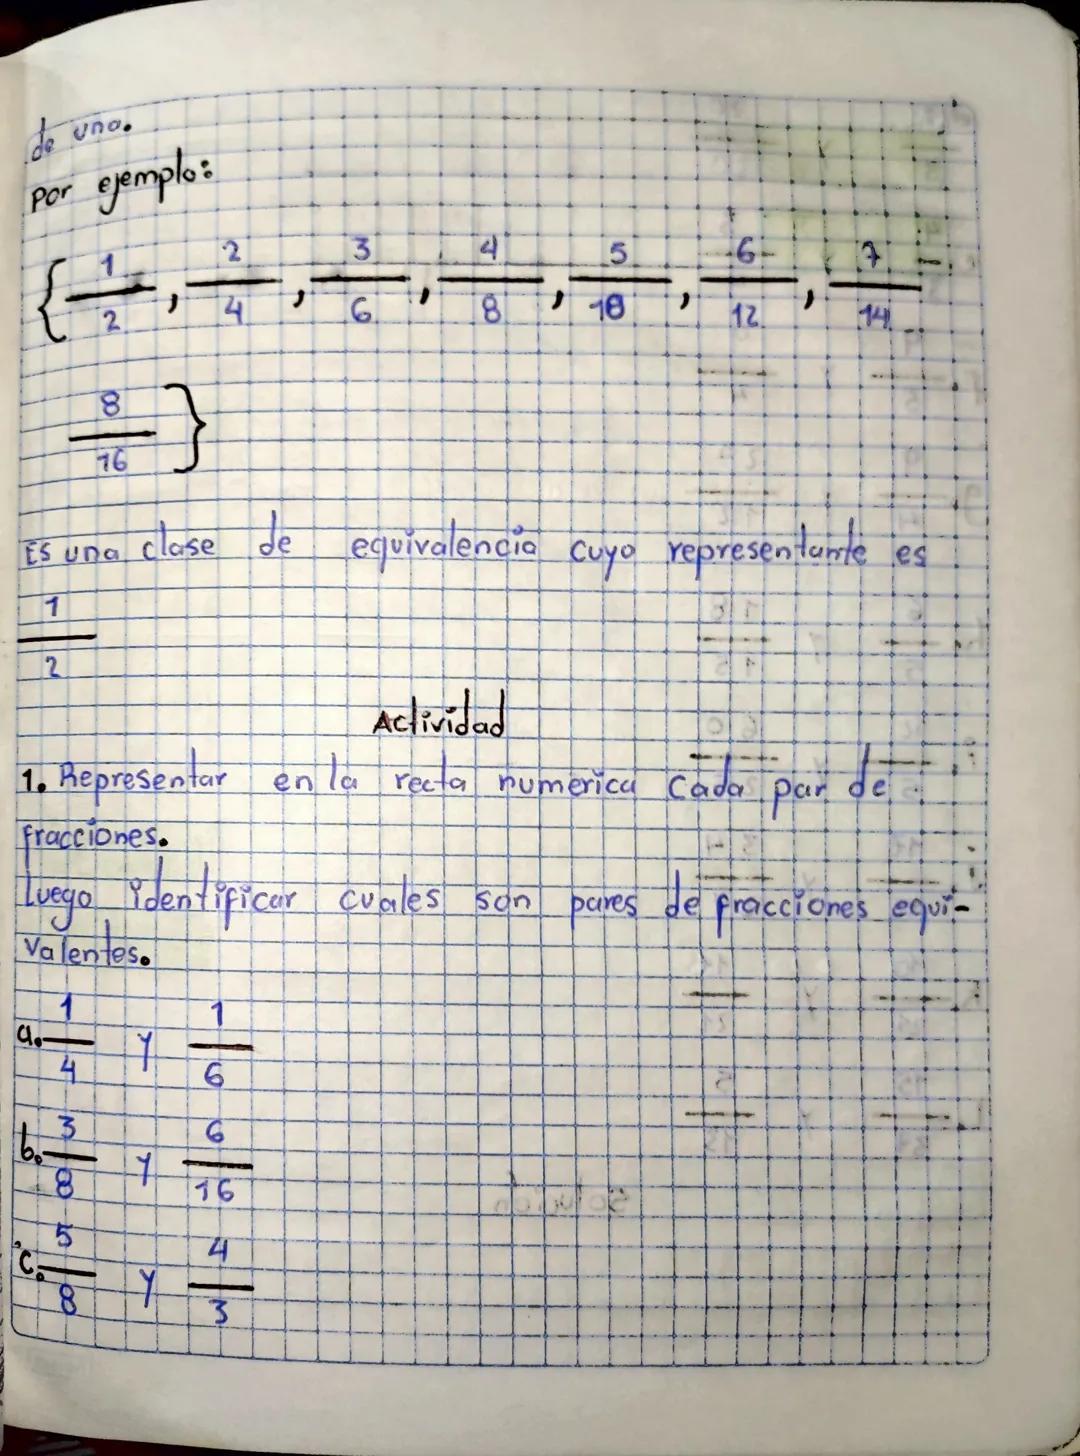 de una.
por ejemplo:
{ 1/2 , 2/4 , 3/6 , 4/8 , 5/10 , 6/12 , 7/14
8/16 }
Es una clase de equivalencia cuyo representante es
1/2
Actividad
1. Representar en la recta numerica Cada par de
fracciones.
Luego identificar cuales son pares de fracciones equi-
Valentes.
a. 1/4 y 1/6
b. 3/8 y 6/16
c. 5/8 y 4/3